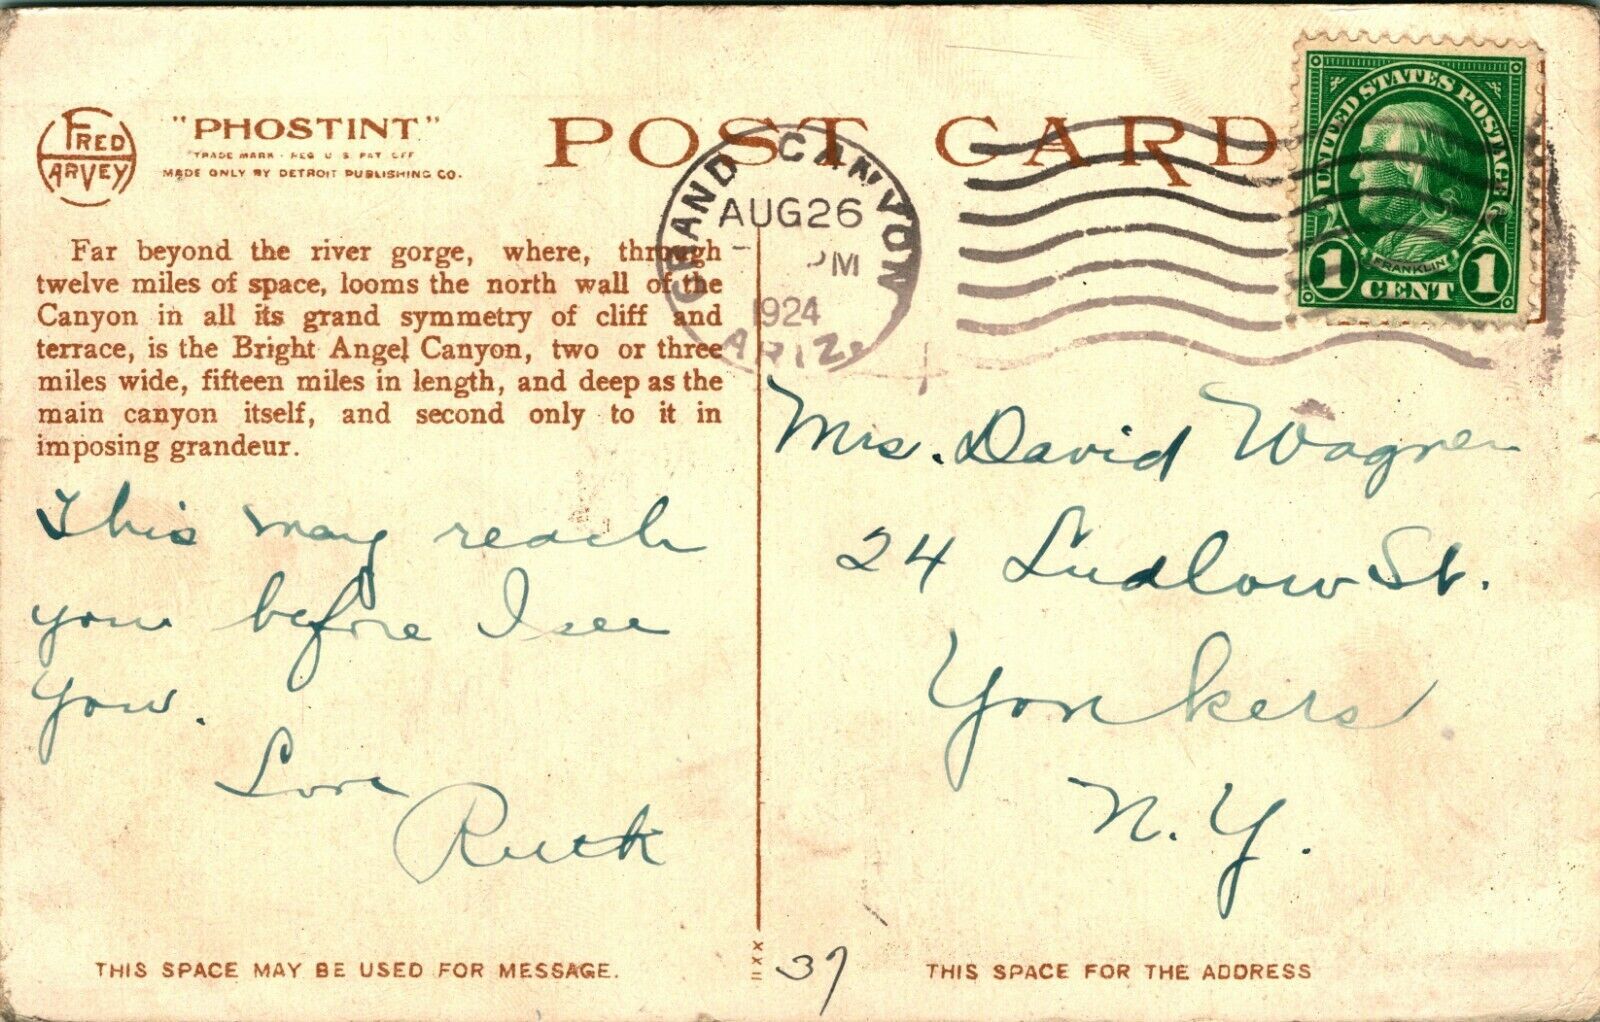 FRED HARVEY
"PHOSTINT"
TRADE MARK - REG U S PAT OFF
MADE ONLY BY DETROIT PUBLISHING CO.
POST CARD
GRAND CANYON
AUG 26
PM
1924
ARIZ.
UNITED STATES POSTAGE
FRANKLIN
1 CENT 1
Far beyond the river gorge, where, through
twelve miles of space, looms the north wall of the
Canyon in all its grand symmetry of cliff and
terrace, is the Bright Angel Canyon, two or three
miles wide, fifteen miles in length, and deep as the
main canyon itself, and second only to it in
imposing grandeur.
This may reach
you before I see
you.
Love
Ruth
Mrs. David Wagner
24 Ludlow St.
Yonkers
N.Y.
THIS SPACE MAY BE USED FOR MESSAGE.
XXII
37
THIS SPACE FOR THE ADDRESS